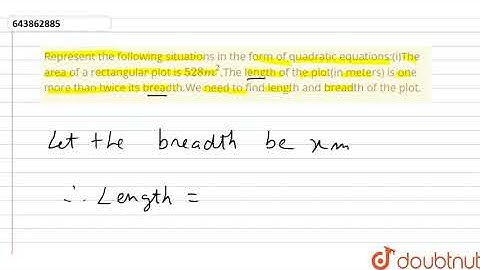 643862885
Represent the following situations in the form of quadratic equations:(i)The
area of a rectangular plot is 528m².The length of the plot(in meters) is one
more than twice its breadth.We need to find length and breadth of the plot.
Let the breadth be x m
∴ Length =
doubtnut